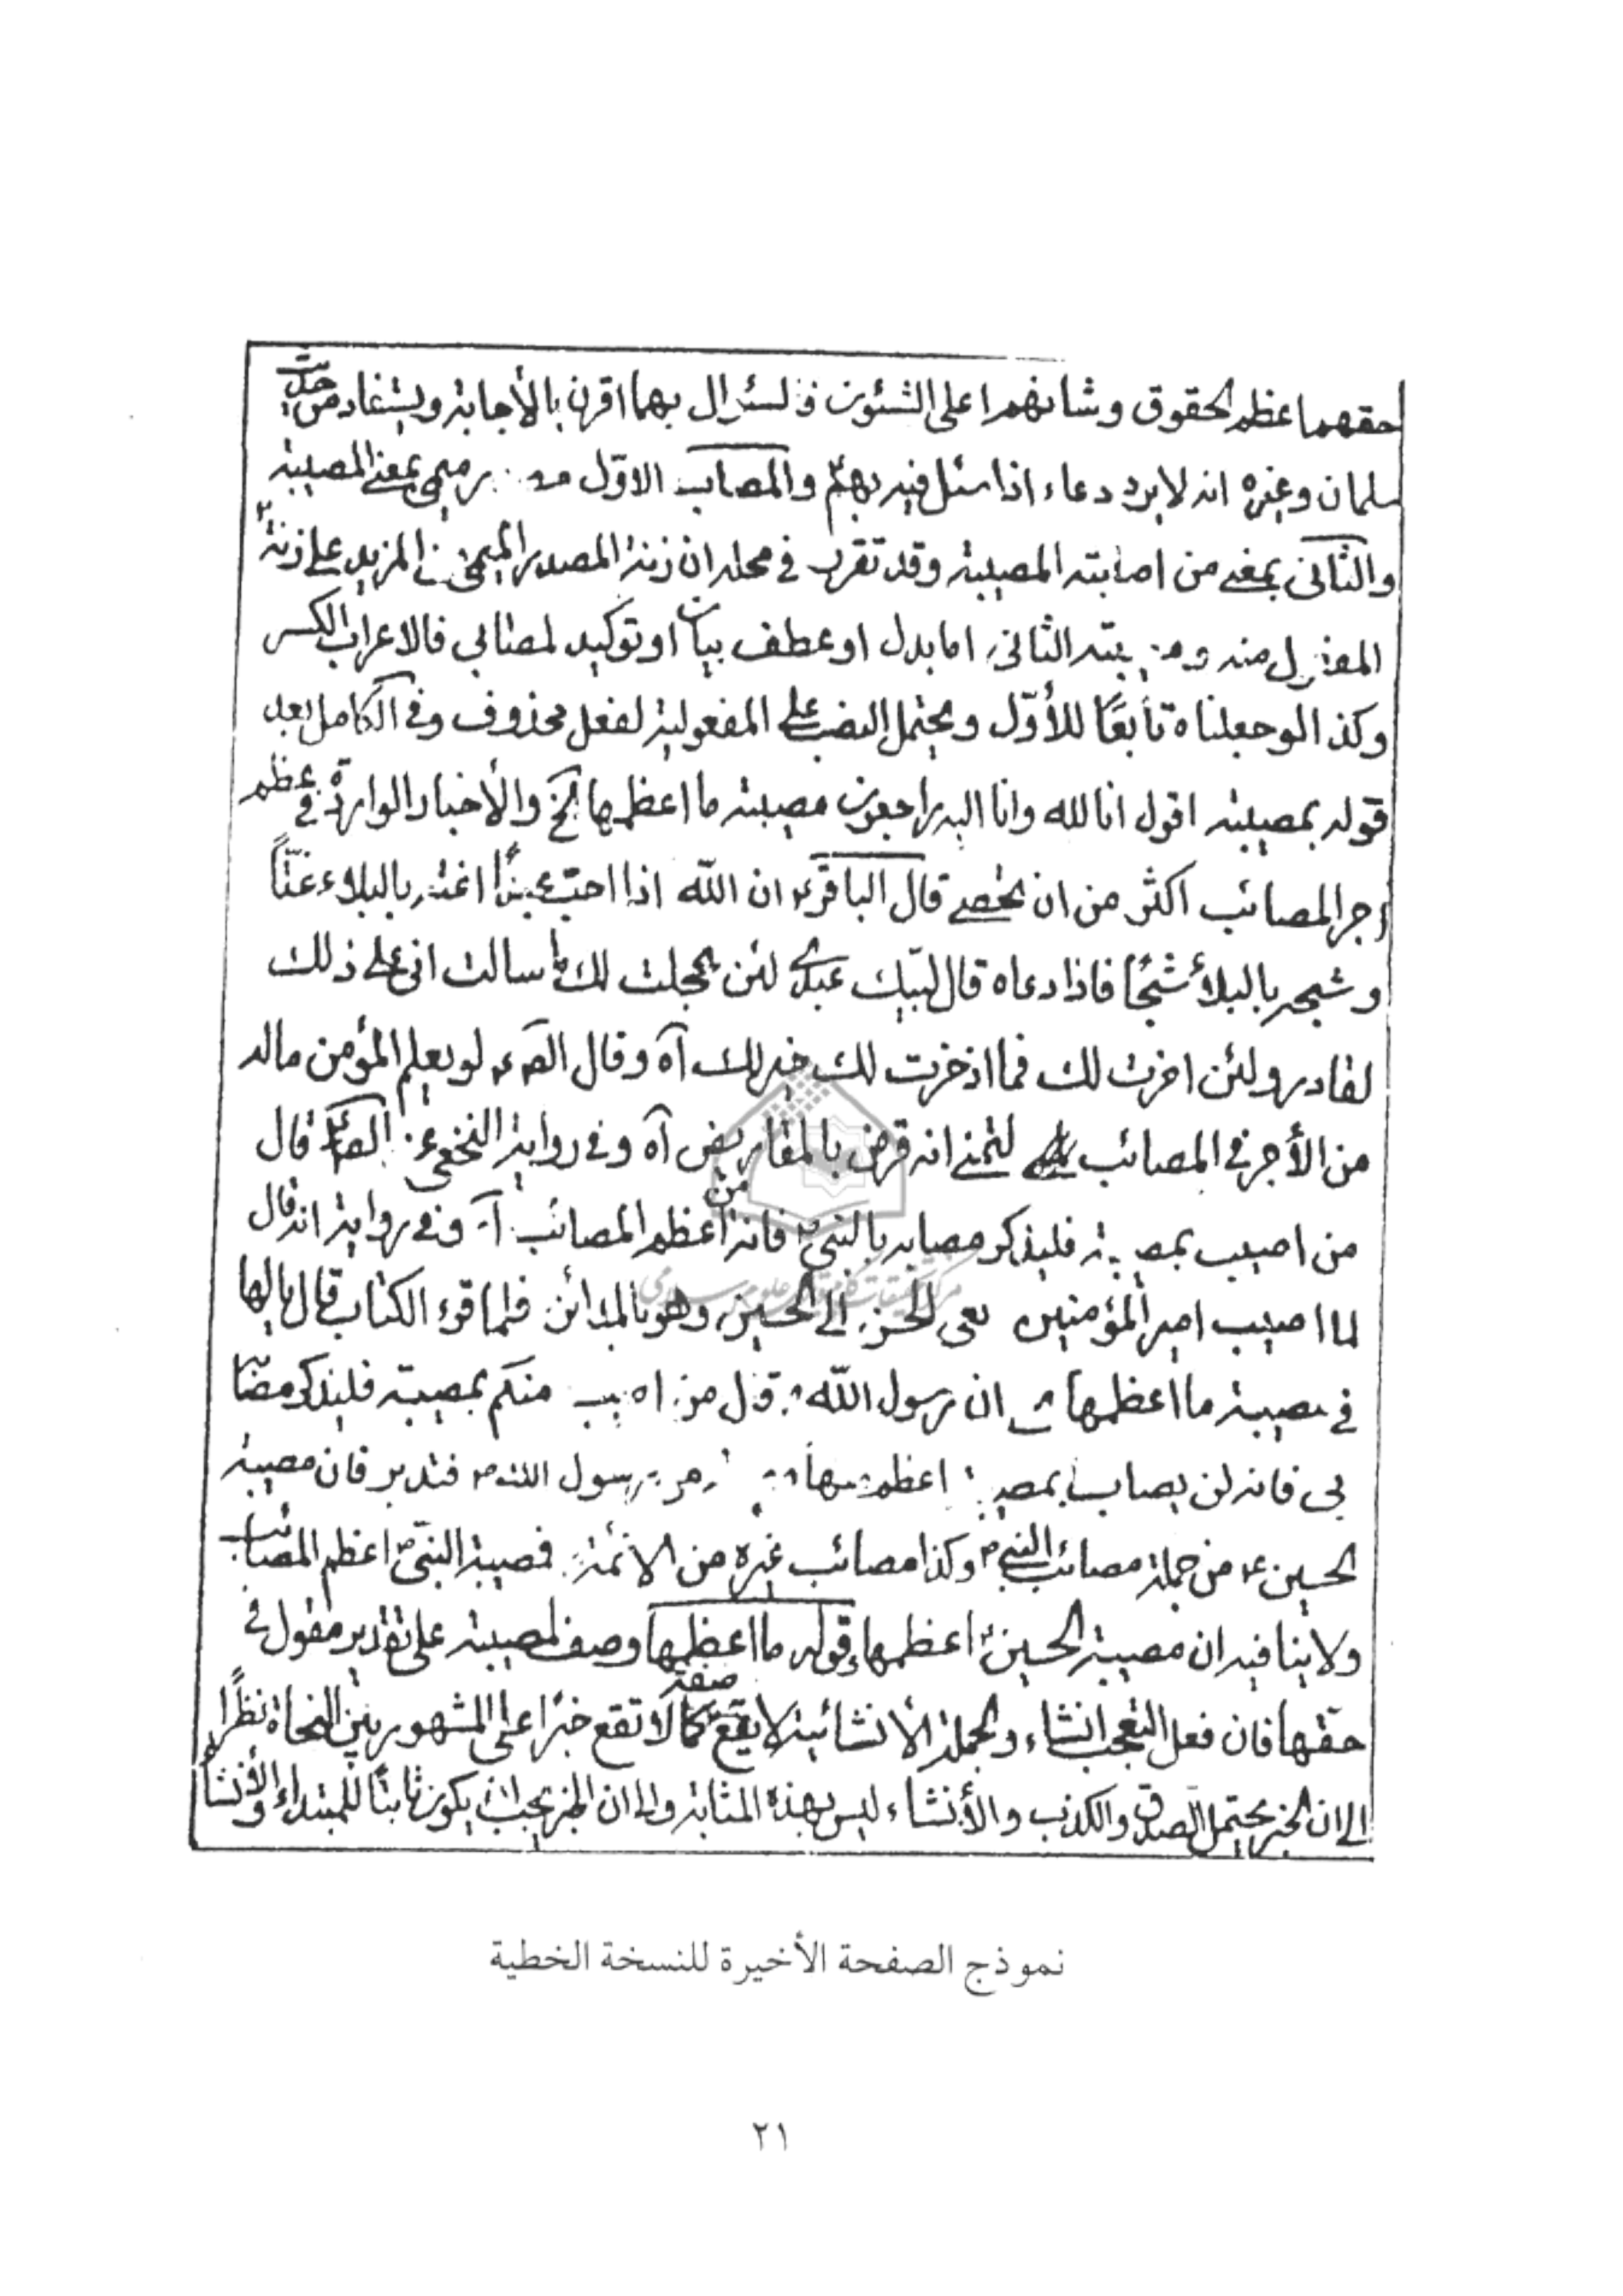 حقهما اعظم الحقوق وشانهما اعلى الشئون فالسئوال بهما اقرن بالأجابة ويستفاد من حديث
سلمان وغيره انه لا يرد دعاء اذا سئل فيه بهم والمصاب الاوّل ميمى بمعنى المصيبة
والثانى بمعنى من اصابته المصيبة وقد تقرر في محله ان زنة المصدر الميمى من المزيد على زنة
المفعول منه الثانى اما بدل او عطف بيان او توكيد لمصابى فالاعراب الكسر
وكذا لو جعلناه تابعًا للأوّل ويحتمل النصب على المفعولية لفعل محذوف وفى الكامل بعد
قوله بمصيبة اقول انا لله وانا اليه راجعون مصيبة ما اعظمها الخ والأخبار الواردة فى عظم
اجر المصائب اكثر من ان تحصى قال الباقر ع ان الله اذا احبّ عبدًا اغتّه بالبلاء غتّاً
وشجه بالبلأ شجًّا فاذا دعاه قال لبّيك عبدى لئن عجلت لك ما سالت انى على ذلك
لقادر ولئن اخرت لك فما اذخرت لك خير لك آه وقال الص ع لو يعلم المؤمن ما له
من الأجر في المصائب لتمنى انه قرض بالمقاريض آه وفى رواية النخعى عن الص ع قال
من اصيب بمصيبة فليذكر مصابه بالنبى ص فانه من اعظم المصائب آه وفى رواية انه قال
لما اصيب امير المؤمنين نعى الحسن الى الحسين وهو بالمدائن فلما قرء الكتاب قال يا لها
من مصيبة ما اعظمها ان رسول الله ص قال من اصيب منكم بمصيبة فليذكر مصابه
بى فانه لن يصاب بمصيبة اعظم منها رسول الله ص فتدبر فان مصيبة
الحسين ع من جملة مصائب النبي ص وكذا مصائب غيره من الائمة فمصيبة النبىّ ص اعظم المصائب
ولا ينافيه ان مصيبة الحسين ع اعظمها وقوله ما اعظمها وصف لمصيبة على تقدير مقول في
حقها فان فعل التعجب انشاء والجملة الأنشائية لا يقع صفة كما لا تقع خبرًا على المشهور بين النحاة نظرًا
الى ان الخبر يحتمل الصدق والكذب والأنشاء ليس بهذه المثابة والى ان الخبر يجب ان يكون ثابتًا للمبتداء والأنشاء
نموذج الصفحة الأخيرة للنسخة الخطية
٢١